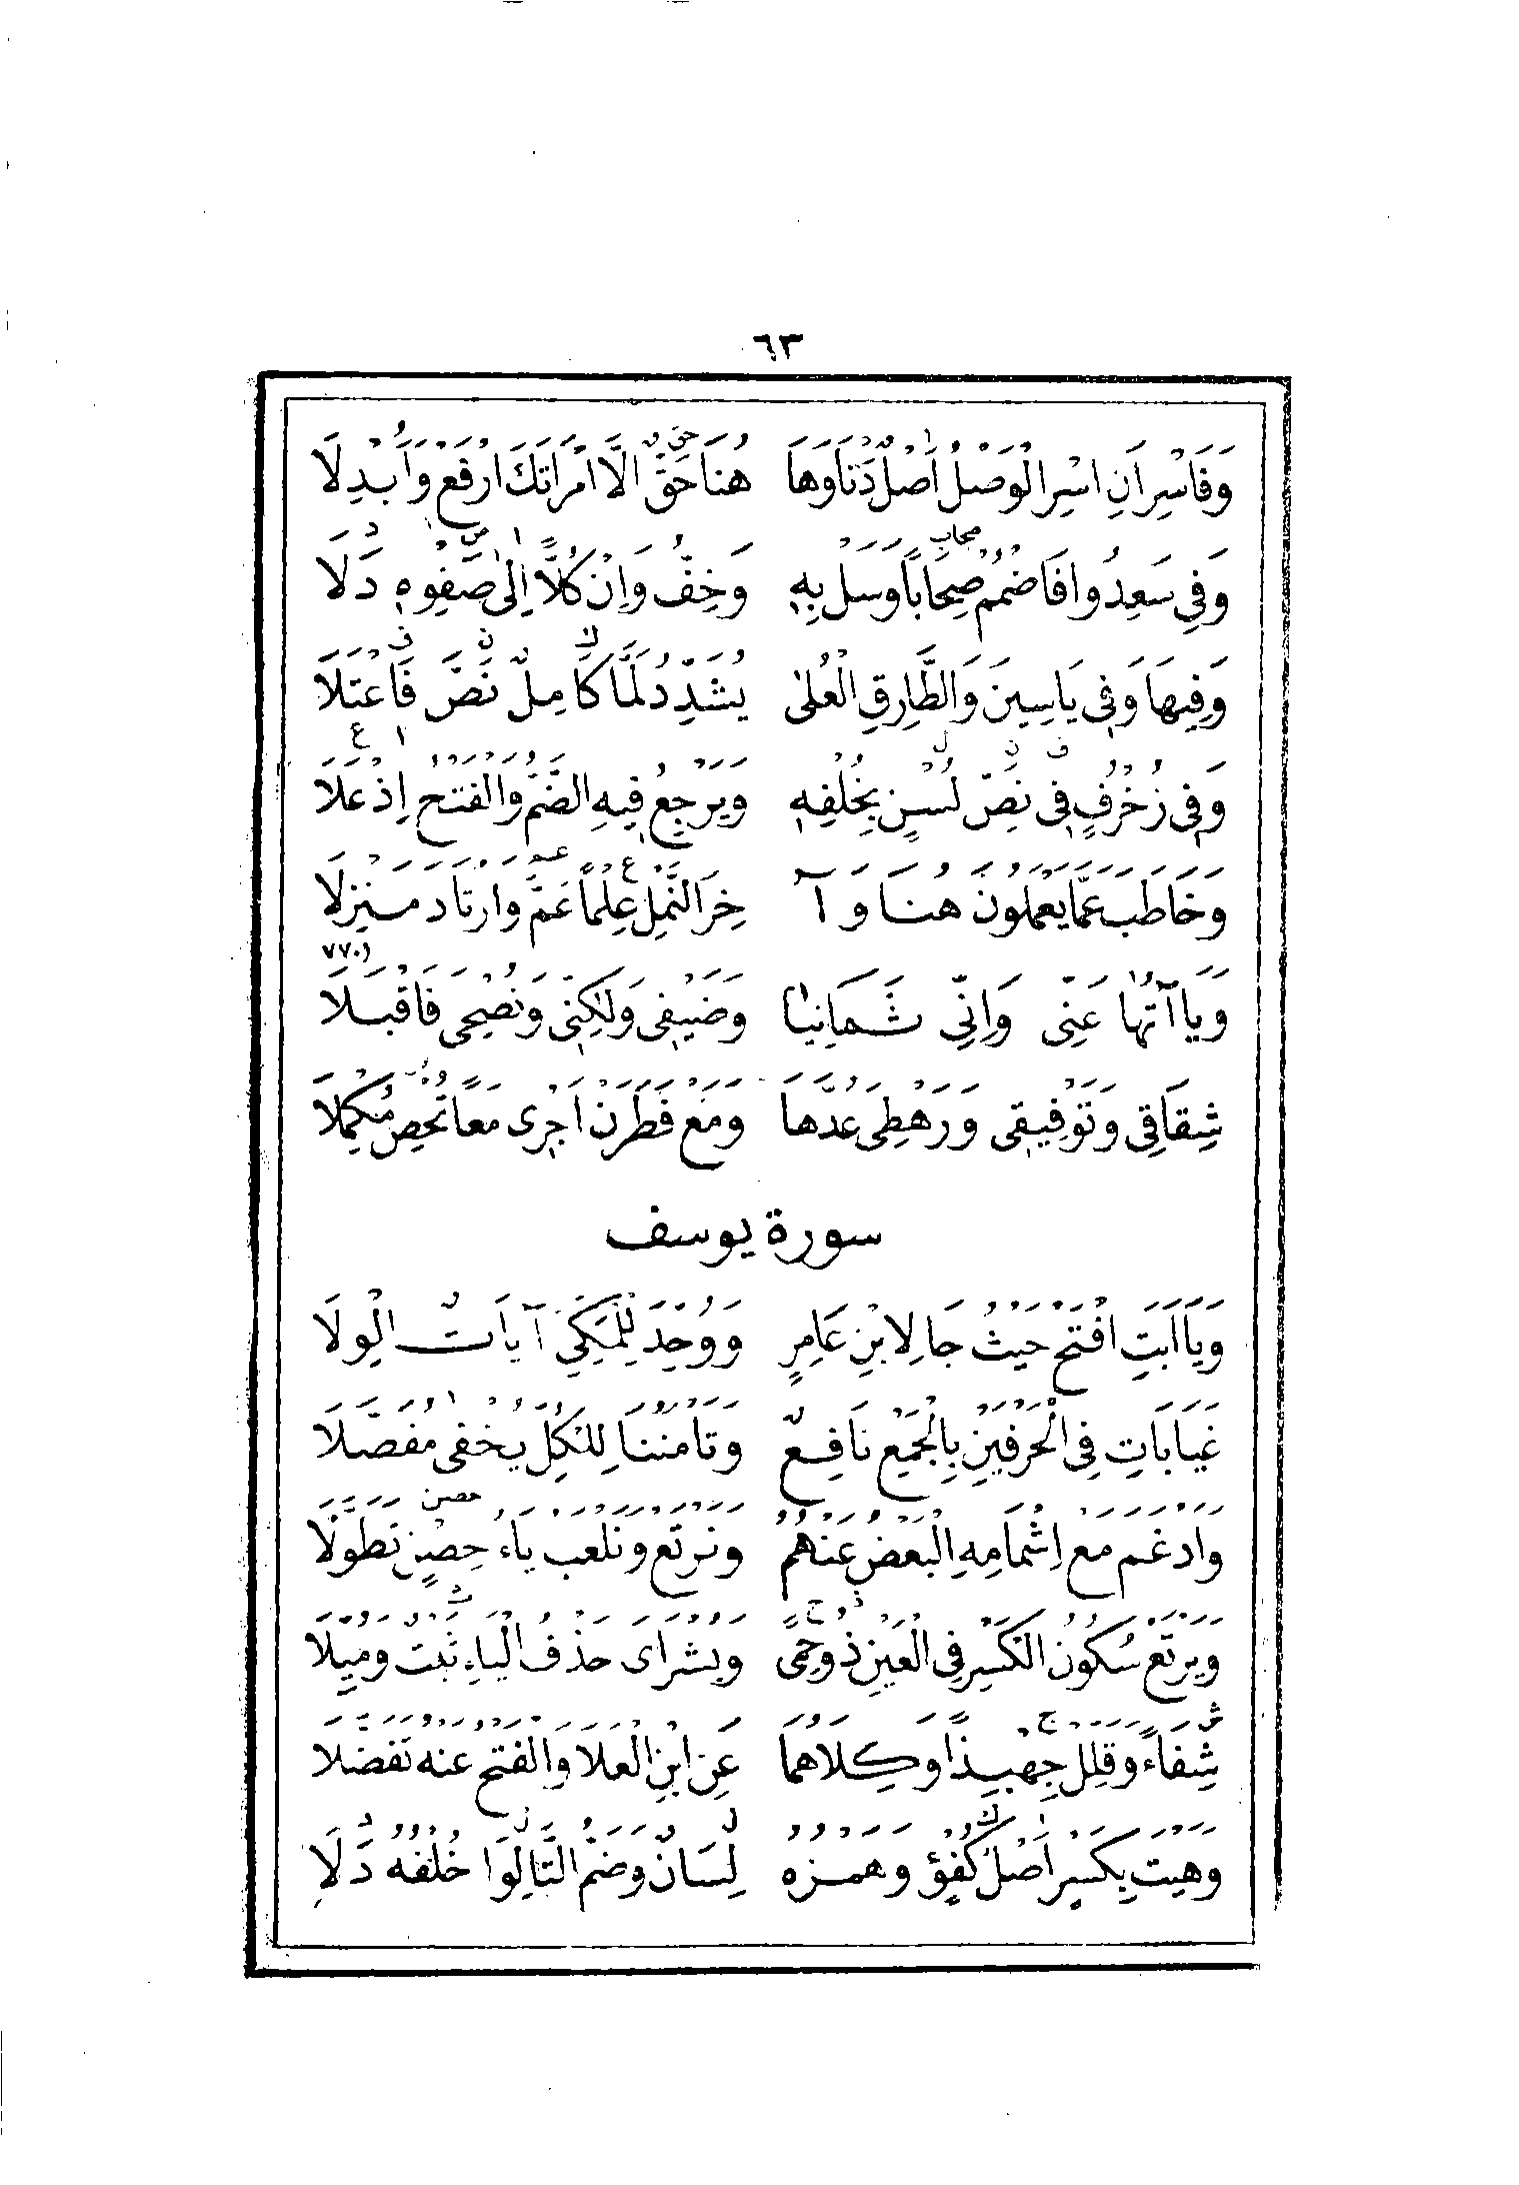 ٦٣
وَفَاسْرِ اَنِ اسْرِ الْوَصْلُ اَصْلٌ دَنَا وَهَا هُنَا حَقٌّ الَّا امْرَاَتَكَ ارْفَعْ وَاَبْدِلَا
وَفِي سَعِدُوا فَاضْمُمْ صِحَابًا وَسَلْ بِهٖ وَخِفُّ وَاِنْ كُلًّا اِلٰى صَفْوِهٖ دَلَا
وَفِيهَا وَفِي يَاسِينَ وَالطَّارِقِ الْعُلٰى يُشَدِّدُ لَمَّا كَامِلٌ نَصَّ فَاعْتَلَا
وَفِي زُخْرُفٍ فِي نَصِّ لُسْنٍ بِخُلْفِهٖ وَيَرْجِعُ فِيهِ الضَّمُّ وَالْفَتْحُ اِذْ عَلَا
وَخَاطَبَ عَمَّا يَعْمَلُونَ هُنَا وَ آ خِرَ النَّمْلِ عِلْمًا عَمَّ وَارْتَادَ مَنْزِلَا
(٧٧٠
وَيَا آتُهَا عَنِّي وَاِنِّي ثَمَانِيًا وَضَيْفِي وَلٰكِنِّي وَنُصْحِي فَاقْبَلَا
شِقَاقِي وَتَوْفِيقِي وَرَهْطِي عُدَّهَا وَمَعْ فَطَرَنْ اَجْرِى مَعًا تُحْصِ مُكْمِلَا
سورة يوسف
وَيَا اَبَتِ افْتَحْ حَيْثُ جَا لِابْنِ عَامِرٍ وَوُحِّدَ لِلْمَكِّيِّ آيَاتٌ الْوِلَا
غَيَابَاتِ فِي الْحَرْفَيْنِ بِالْجَمْعِ نَافِعٌ وَتَأْمَنُنَا لِلْكُلِّ يُخْفٰى مُفَصَّلَا
وَاَدْغَمَ مَعْ اِشْمَامِهِ الْبَعْضُ عَنْهُمُ وَنَرْتَعْ وَنَلْعَبْ يَاءُ حِصْنٍ تَطَوَّلَا
وَيَرْتَعْ سُكُونُ الْكَسْرِ فِي الْعَيْنِ ذُو حِمًى وَبُشْرَاىَ حَذْفُ الْيَاءِ ثَبْتٌ وَمُيِّلَا
شِفَاءً وَقَلِّلْ جِهْبِذًا وَكِلَاهُمَا عَنِ ابْنِ الْعَلَا وَالْفَتْحُ عَنْهُ تَفَضَّلَا
وَهَيْتَ بِكَسْرٍ اَصْلُ كُفْؤٍ وَهَمْزُهُ لِسَانٌ وَضَمُّ التَّا لِوَا خُلْفُهُ دَلَا